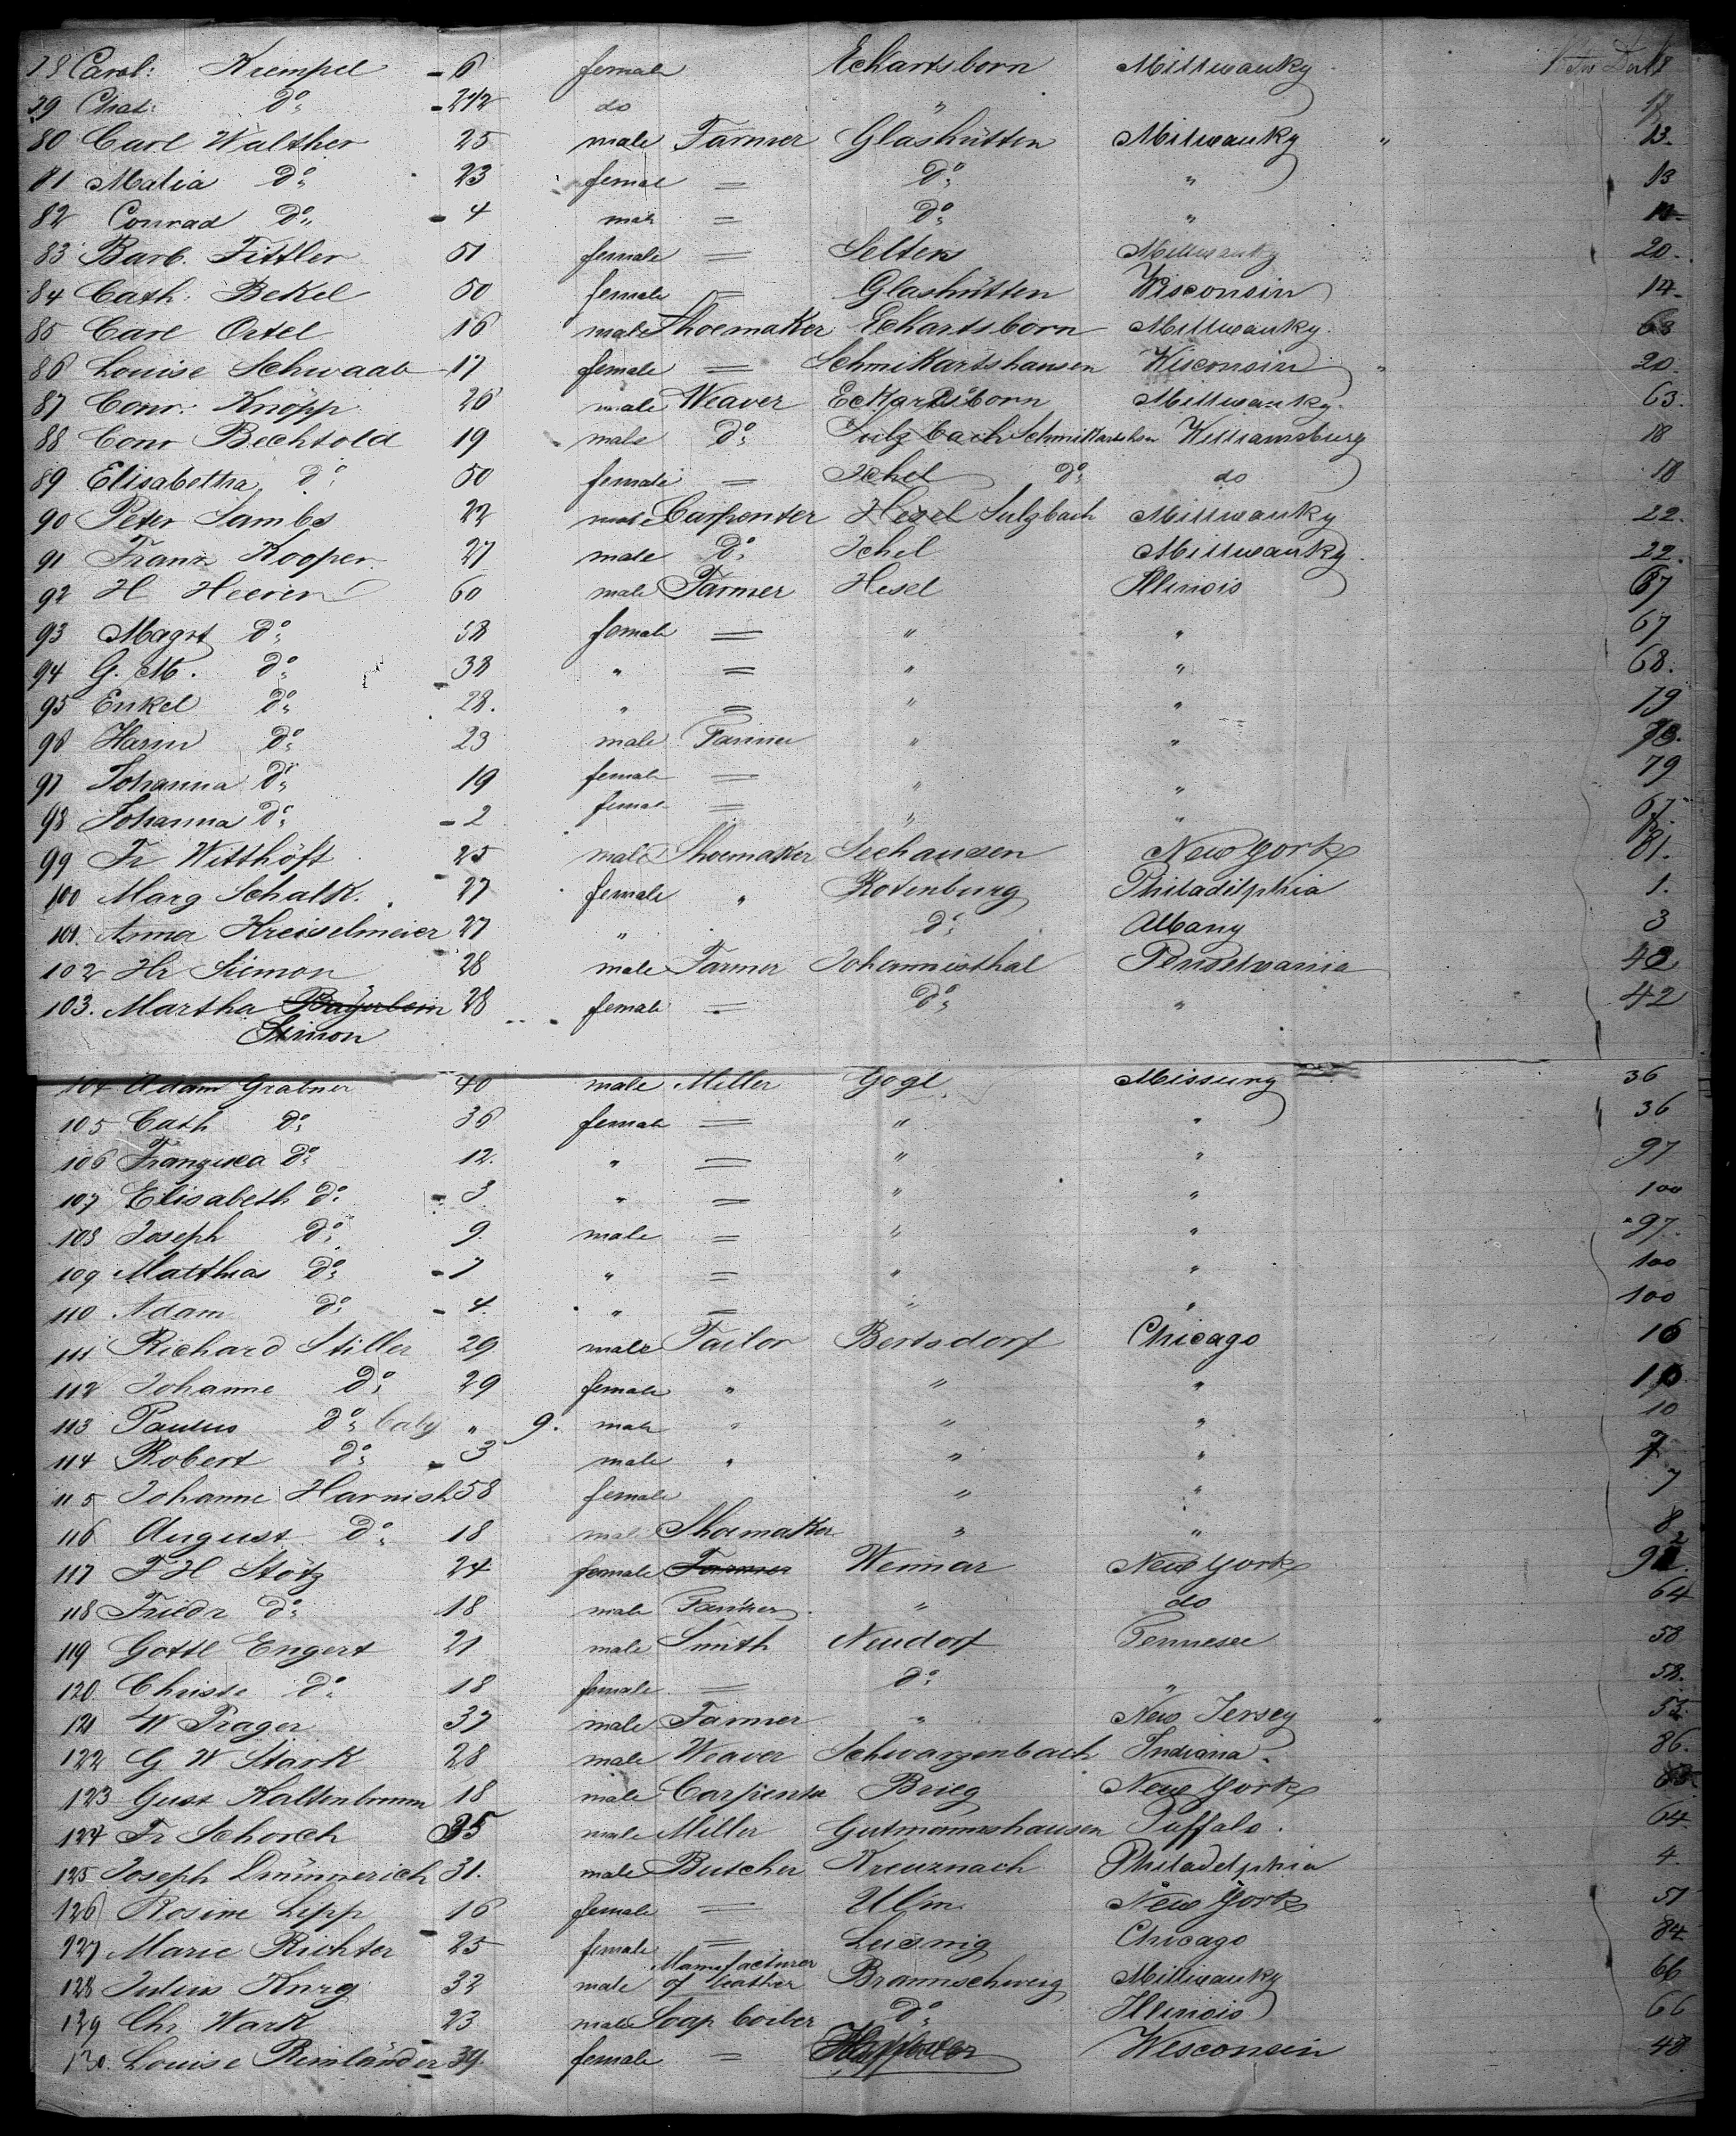 78 Carol: Kempel 6 female Eckartsborn Millwauky
79 Chat: do 2 1/2 do "
80 Carl Walther 25 male Farmer Glashütten Milwauky " 13.
81 Malia do 23 femal = do " 13
82 Conrad do 4 male = do "
83 Barb. Tittler 51 female = Selters Millwauky 20.
84 Cath: Bekel 50 female = Glashütten Wisconsin 14.
85 Carl Ortel 16 male Shoemaker Eckartsborn Millwauky. 63
86 Louise Schwaab 17 female = Schmikartshausen Wisconsin " 20.
87 Conr: Knöpp 26 male Weaver Eckartsborn Millwauky. 63.
88 Conr Bechtold 19 male do Sulzbach Schmikartshsn Williamsburg 18
89 Elisabetha do 50 female = Ichel do do 18
90 Peter Lambs 22 male Carpenter Hesel Sulzbach Millwauky 22.
91 Franz Kooper 27 male do Ichel Millwauky. 22.
92 H Heeren 60 male Farmer Hesel Illinois 67
93 Magrt do 58 female = " " 67
94 G. M. do 38 " = " " 68.
95 Enkel do 28. " = " " 79
96 Harm do 23 male Farmer " "
97 Johanna do 19 female = " " 79
98 Johanna do 2 femal = " " 67.
99 Fr Witthöft 25 male Shoemaker Seehausen New York 81.
100 Marg Schalk. 27 female " Rotenburg Philadelphia 1.
101. Anna Kreiselmeier 27 " do Albany 3
102 Hr Siemon 28 male Farmer Johannisthal Penselvania 42
103. Martha Bayerlein 28 female = do " 42
Simon
104 Adam Grabner 40 male Miller Gogl Missury 36
105 Cath do 36 female = " " 36
106 Franzisca do 12. " = " " 97
107 Elisabeth do 3 " = " " 100
108 Joseph do 9. male = " " 97
109 Matthias do 7 " = " " 100
110 Adam do 4. " = " " 100
111 Richard Stiller 29 male Tailor Bertsdorf Chicago 16
112 Johanne do 29 female " " "
113 Paulus do baby " 9. male " " " 10
114 Robert do 3 male " " " 7
115 Johanne Harnish 58 female " " 7
116 August do 18 male Shoemaker " " 8
117 F H Stötz 24 female Farmer Weimar New York
118 Friedr do 18 male Farmer " do 64
119 Gottl Engert 21 male Smith Neudorf Tennesee 58
120. Christe do 18 female = do " 58.
121 W Prager 37 male Farmer " New Jersey " 53.
122 G W Stark 28 male Weaver Schwarzenbach Indiana. 86.
123 Gust Kaltenbrunn 18 male Carpenter Brieg New York
124 Fr Schorch 35 male Miller Gutmannshausen Puffalo. 64.
125 Joseph Dmümmerich 31. male Butcher Kreuznach Philadelphia 4.
126 Rosine Lipp 16 female = Ulm. New York 51
127 Marie Richter 25 female = Leisnig Chicago 84
128 Julius Knrg 32 male Manufacturer of leather Braunschweig Milliwauky 66
129 Chr Wark 23 male Soap boiler do Illinois 66
130. Louise Rimländer 39. female = Wesconsin 48